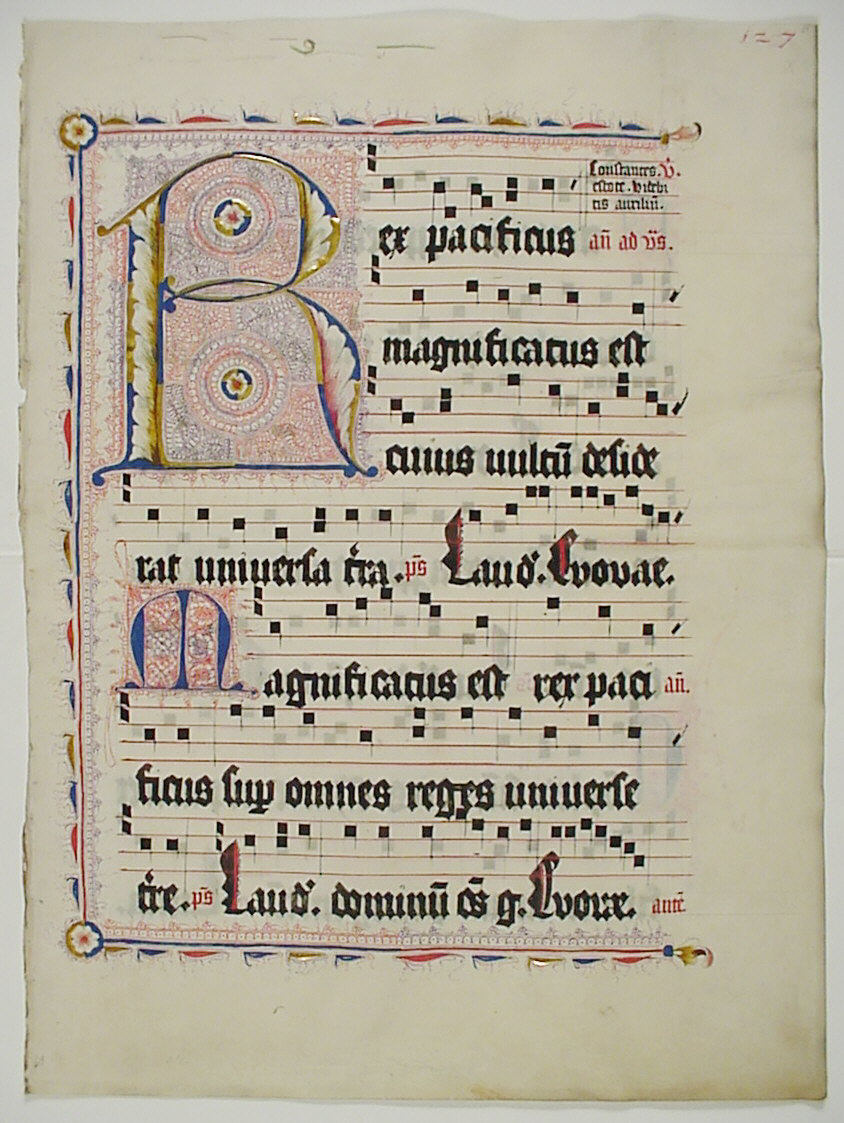 127
Constantes. V̄.
estote. videbi
tis auxiliū.
Rex pacificus an̄ ad vs̄.
magnificatus est
cuius uultū deside
rat uniuersa tr̄a. ps̄ Laud'. Evovae.
Magnificatus est rex paci an̄.
ficus sup̱ omnes reges uniuerse
tr̄e. ps̄ Laud'. dominū om̄s g. Evovæ. antē.